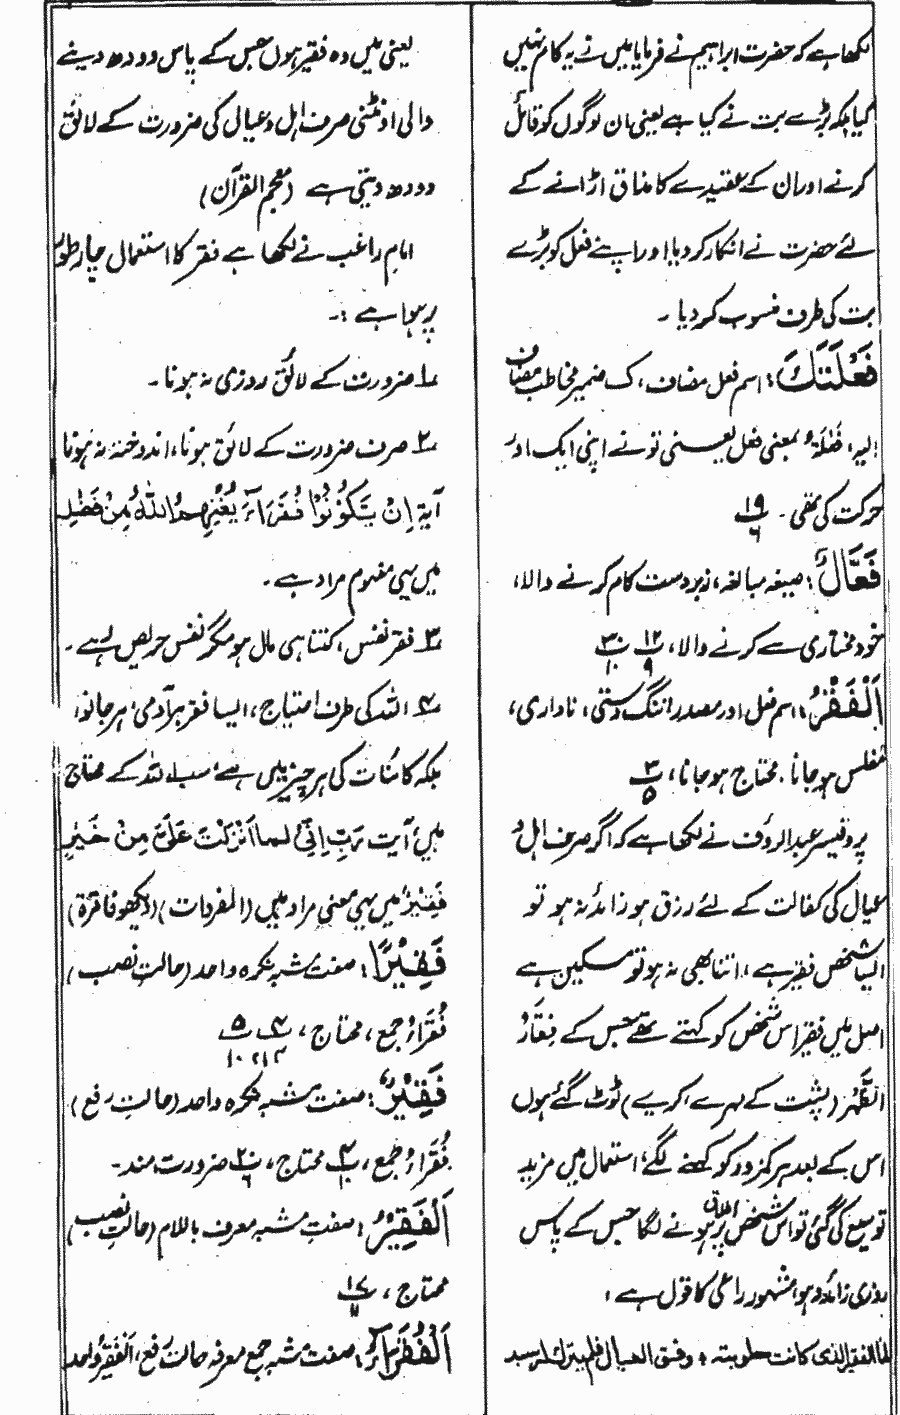 لکھا ہے کہ حضرت ابراہیم نے فرمایا میں نے یہ کام نہیں
کیا بلکہ بڑے بت نے کیا ہے یعنی ان لوگوں کو قائل
کرنے اور ان کے عقیدے کا مذاق اڑانے کے
لئے حضرت نے انکار کر دیا اور اپنے فعل کو بڑے
بت کی طرف منسوب کر دیا ۔
فَعْلَتَكَ : اسم فعل مضاف، ک ضمیر مخاطب مضاف
الیہ، فَعْلَةٌ بمعنی فعل یعنی تو نے اپنی ایک اور
حرکت کی تھی ۔ ١٩/٦
فَعَّالٌ : صیغہ مبالغہ، زبردست کام کرنے والا،
خود مختاری سے کرنے والا، ١٢/٩ ٣٠/١٠
اَلْفَقْرُ : اسم فعل اور مصدر تنگ دستی، ناداری،
مفلس ہو جانا، محتاج ہو جانا، ٣/٥
پروفیسر عبدالرؤف نے لکھا ہے کہ اگر صرف اہل و
عیال کی کفالت کے لئے رزق ہو زائد نہ ہو تو
ایسا شخص فقیر ہے، اتنا بھی نہ ہو تو مسکین ہے
اصل میں فقیر اس شخص کو کہتے تھے جس کے فِقَارُ
الظَّهر (پشت کے مہرے، کریے) ٹوٹ گئے ہوں
اس کے بعد ہر کمزور کو کہنے لگے، استعمال میں مزید
توسیع کی گئی تو اس شخص پر اطلاق ہونے لگا جس کے پاس
روزی زائد نہ ہو، مشہور راعی کا قول ہے ؛
اما الفقیر الذی کانت حلوبتہ ؛ وفق العیال فلم یترک لہ سبد
یعنی میں وہ فقیر ہوں جس کے پاس دودھ دینے
والی اونٹنی صرف اہل و عیال کی ضرورت کے لائق
دودھ دیتی ہے (معجم القرآن)
امام راغب نے لکھا ہے فقر کا استعمال چار طور
پر ہوا ہے :-
۱ ضرورت کے لائق روزی نہ ہونا ۔
۲ صرف ضرورت کے لائق ہونا، اندوختہ نہ ہونا
آیۃ اِنْ يَّكُوْنُوْا فُقَرَاءَ يُغْنِهِمُ اللّٰهُ مِنْ فَضْلِهِ
میں یہی مفہوم مراد ہے ۔
۳ فقر نفس، کتنا ہی مال ہو مگر نفس حریص رہے ۔
۴ اللہ کی طرف احتیاج، ایسا فقر ہر آدمی، ہر جانور
بلکہ کائنات کی ہر چیز میں ہے، سب اللہ کے محتاج
ہیں، آیت رَبِّ اِنِّیْ لِمَا اَنْزَلْتَ عَلَیَّ مِنْ خَیْرٍ
فَقِیْرٌ میں یہی معنی مراد ہیں (المفردات) (دیکھو فاقرة)
فَقِیْرًا : صفت مشبہ نکرہ واحد (حالت نصب)
فُقَرَاءُ جمع، محتاج، ٤/١٢،٢ ٥/١٠
فَقِیْرٌ : صفت مشبہ نکرہ واحد (حالتِ رفع)
فُقَرَاءُ جمع، ٤/١٠ محتاج، ٢٠/٦ ضرورت مند ۔
اَلْفَقِیْرُ : صفتِ مشبہ معرف باللام (حالتِ نصب)
محتاج، ١٧/١١
اَلْفُقَرَآءُ : صفت مشبہ جمع معرفہ حالت رفع، اَلْفَقِیْرُ واحد